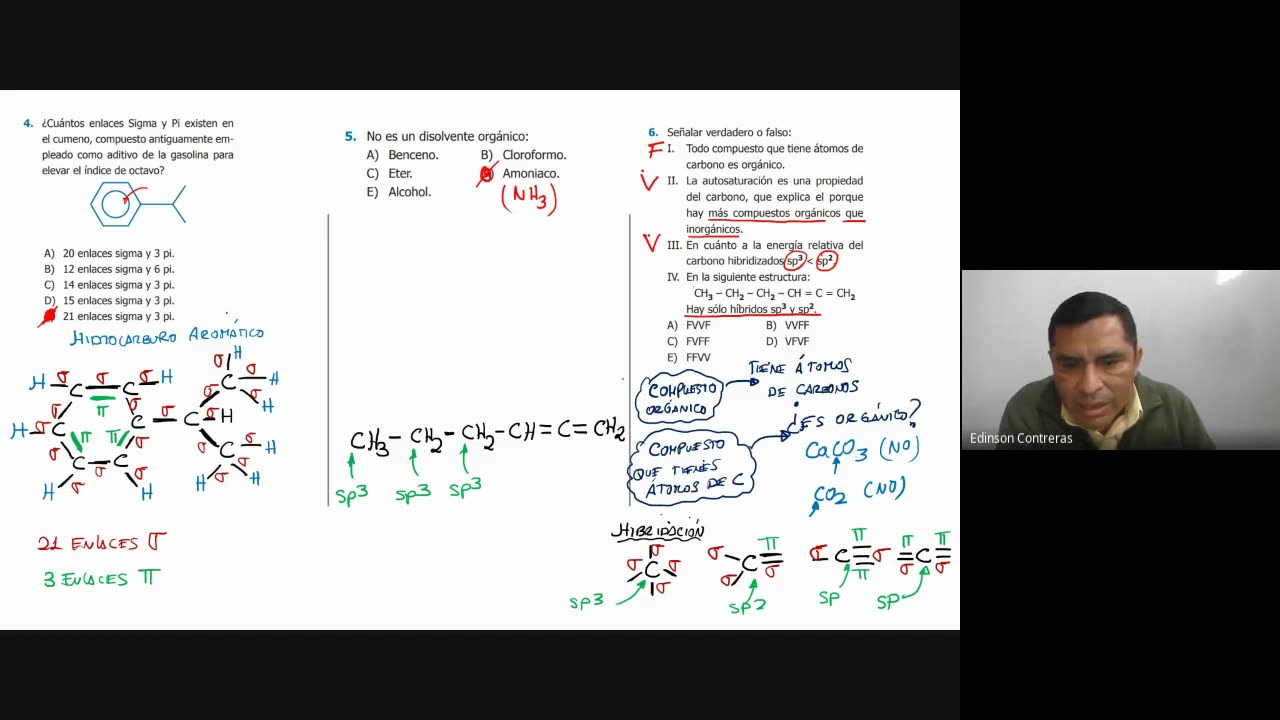 4. ¿Cuántos enlaces Sigma y Pi existen en
el cumeno, compuesto antiguamente em-
pleado como aditivo de la gasolina para
elevar el índice de octavo?
A) 20 enlaces sigma y 3 pi.
B) 12 enlaces sigma y 6 pi.
C) 14 enlaces sigma y 3 pi.
D) 15 enlaces sigma y 3 pi.
21 enlaces sigma y 3 pi.
HIDROCARBURO AROMÁTICO
σ H
H σ C σ C σ H σ C σ H
π σ σ σ H
H σ C π π C σ C σ H
σ σ σ
σ C σ C σ C σ H
H H H σ H
21 ENLACES σ
3 ENLACES π
5. No es un disolvente orgánico:
A) Benceno. B) Cloroformo.
C) Eter. Amoniaco.
E) Alcohol. (NH3)
CH3 – CH2 – CH2 – CH = C = CH2
sp3 sp3 sp3
6. Señalar verdadero o falso:
F I. Todo compuesto que tiene átomos de
carbono es orgánico.
V II. La autosaturación es una propiedad
del carbono, que explica el porque
hay más compuestos orgánicos que
inorgánicos.
V III. En cuánto a la energía relativa del
carbono hibridizados sp³ < sp²
IV. En la siguiente estructura:
CH₃ – CH₂ – CH₂ – CH = C = CH₂
Hay sólo híbridos sp³ y sp².
A) FVVF B) VVFF
C) FVFF D) VFVF
E) FFVV
COMPUESTO
ORGÁNICO
TIENE ÁTOMOS
DE CARBONOS
COMPUESTO
QUE TIENES
ÁTOMOS DE C
¿ES ORGÁNICO?
CaCO3 (NO)
CO2 (NO)
HIBRIDACIÓN
σ σ C σ σ
sp3
σ σ C π σ
sp2
σ C π σ π
sp
π σ C π σ
sp
Edinson Contreras